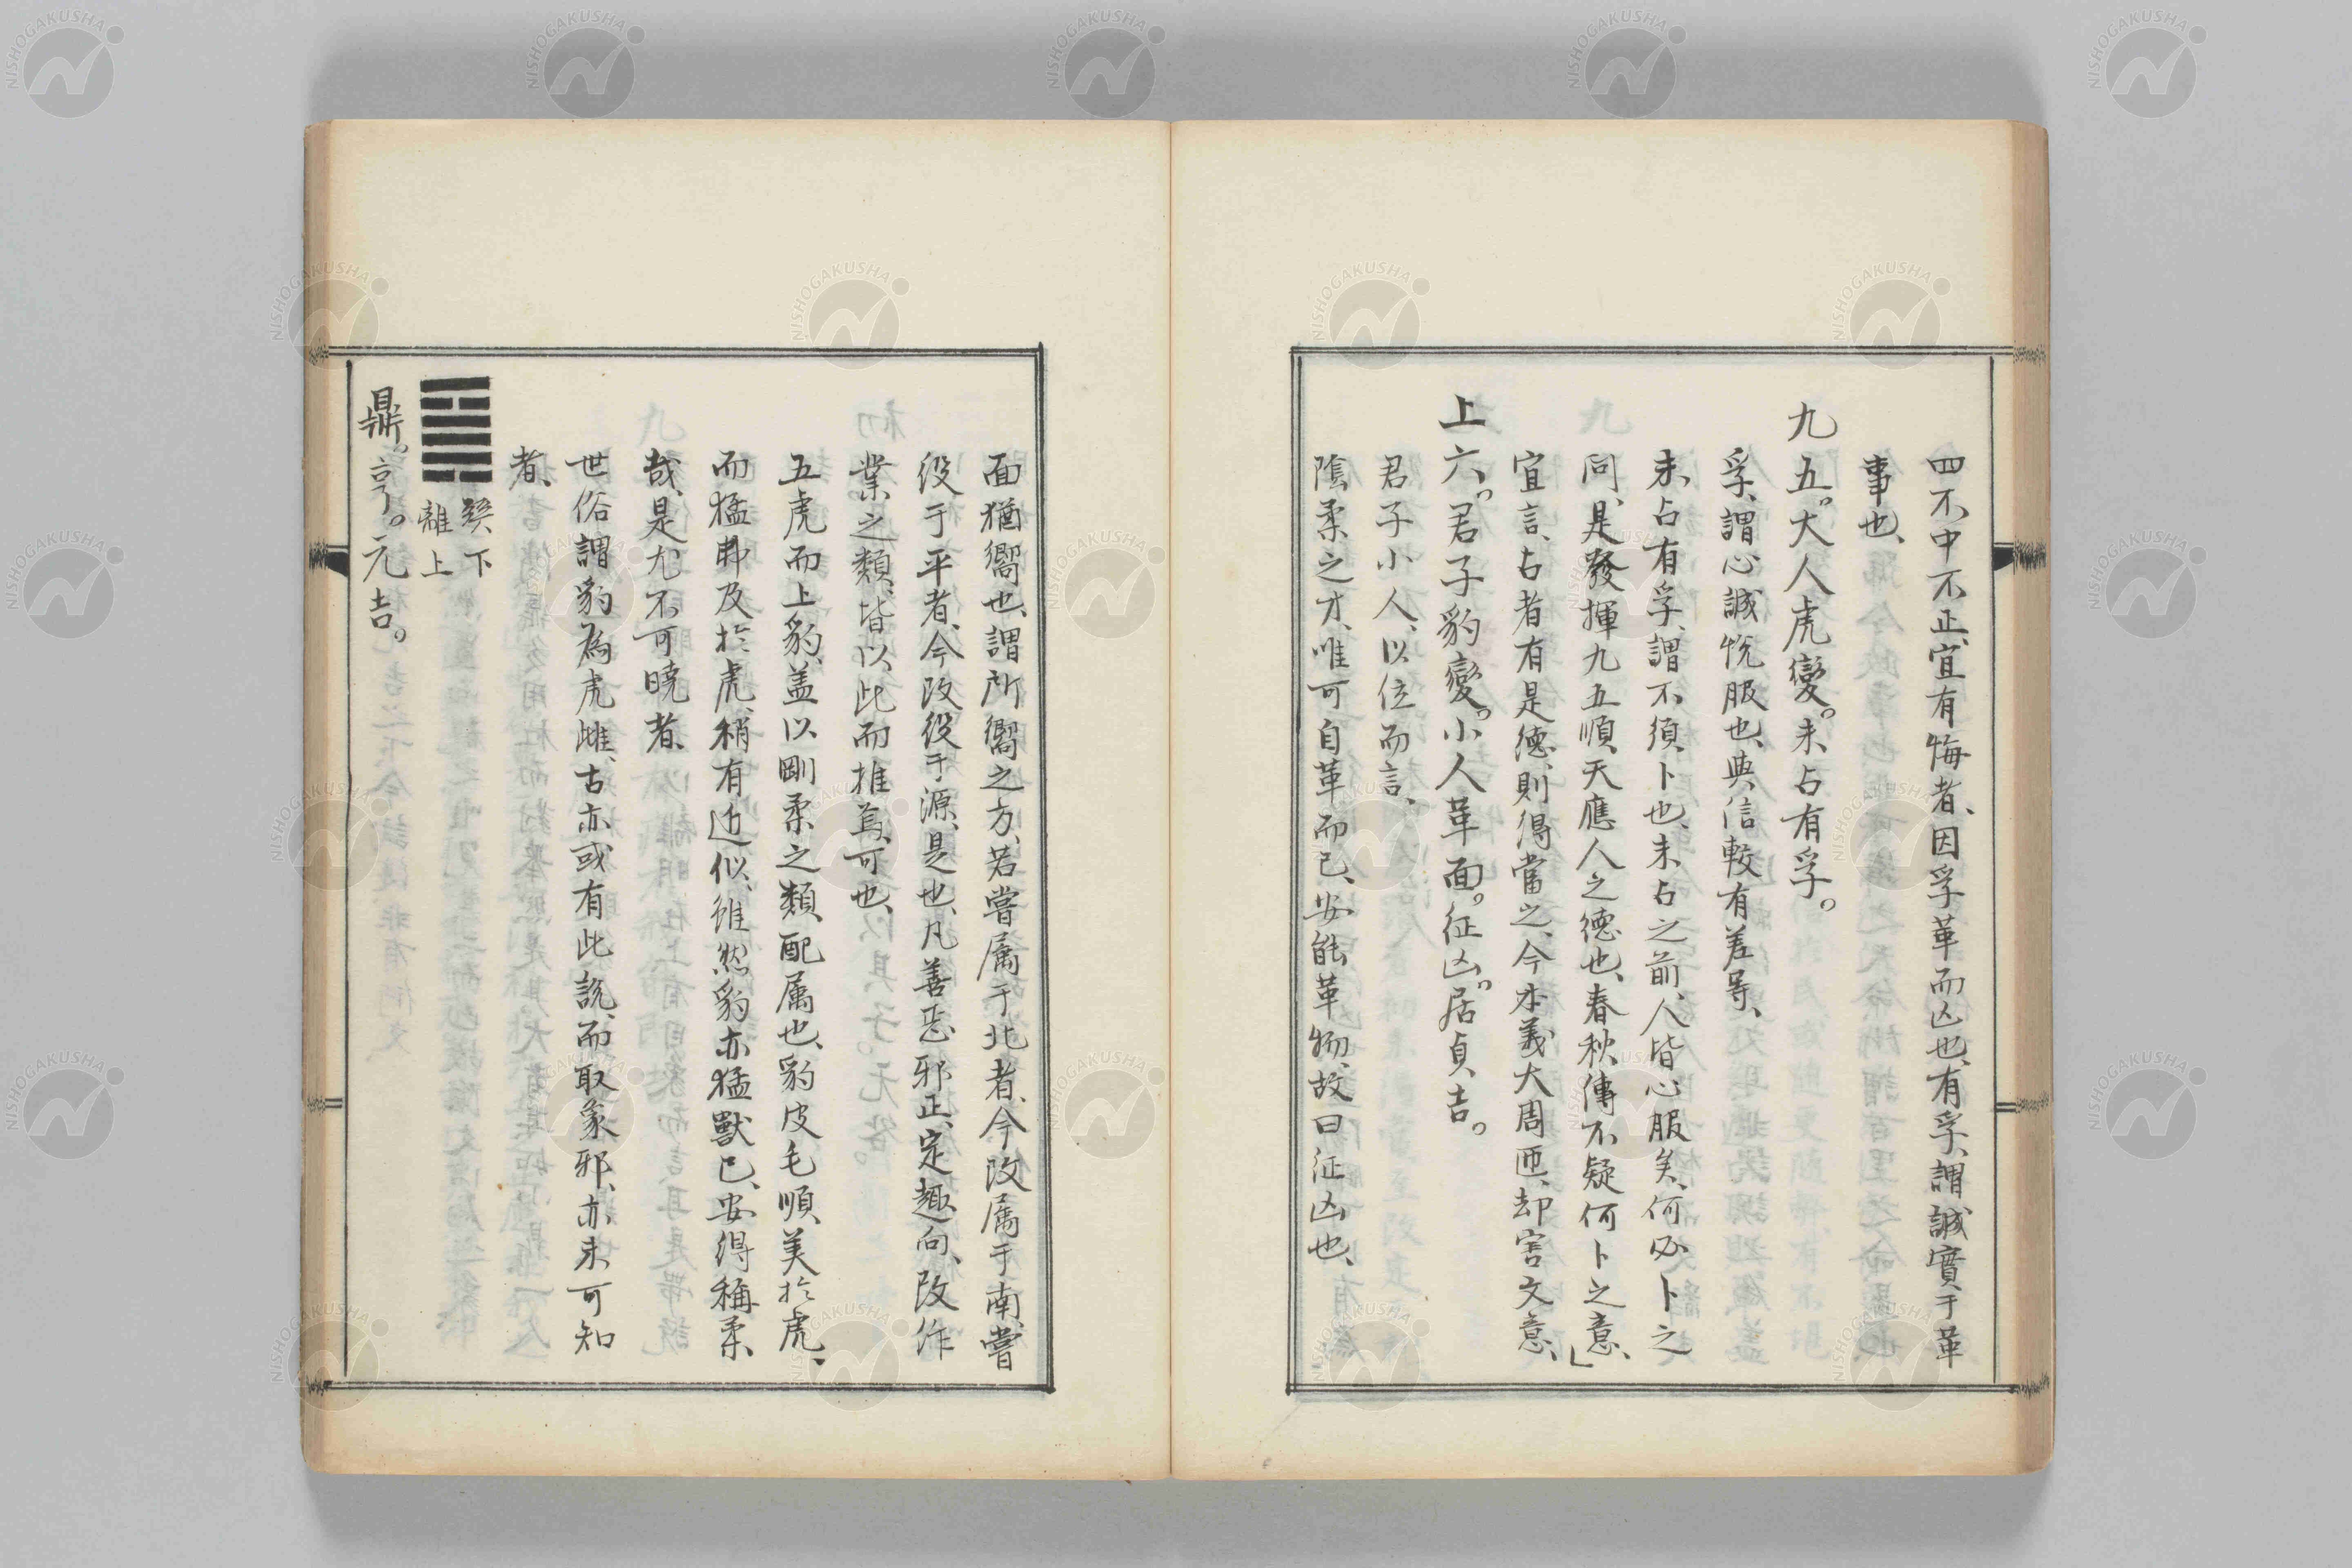 四不中不正、宜有悔者、因孚革而凶也、有孚、謂誠實于革
事也、
九五。大人虎變。未占有孚。
孚、謂心誠悅服也、與信較有差等、
未占有孚、謂不須卜也、未占之前、人皆心服矣、何必卜之
問、是發揮九五順天應人之德也、春秋傳不疑何卜之意、」
宜言、占者有是德、則得當之、今本義大周匝、却害文意、
上六。君子豹變。小人革面。征凶。居貞吉。
君子小人、以位而言、
陰柔之才、唯可自革而已、安能革物、故曰征凶也、
面猶嚮也、謂所嚮之方、若嘗属于北者、今改属于南、嘗
役于平者、今改役于源、是也、凡善惡邪正、定趣向、改作
業之類、皆以此而推焉、可也、
五虎而上豹、盖以剛柔之類、配属也、豹皮毛順美於虎、
而猛弗及於虎、稍有近似、雖然豹亦猛獸已、安得稱柔
哉、是尤不可曉者、
世俗謂豹為虎雌、古亦或有此說、而取象邪、亦未可知
者、
巽下
離上
鼎。亨。元吉。
NISHOGAKUSHA